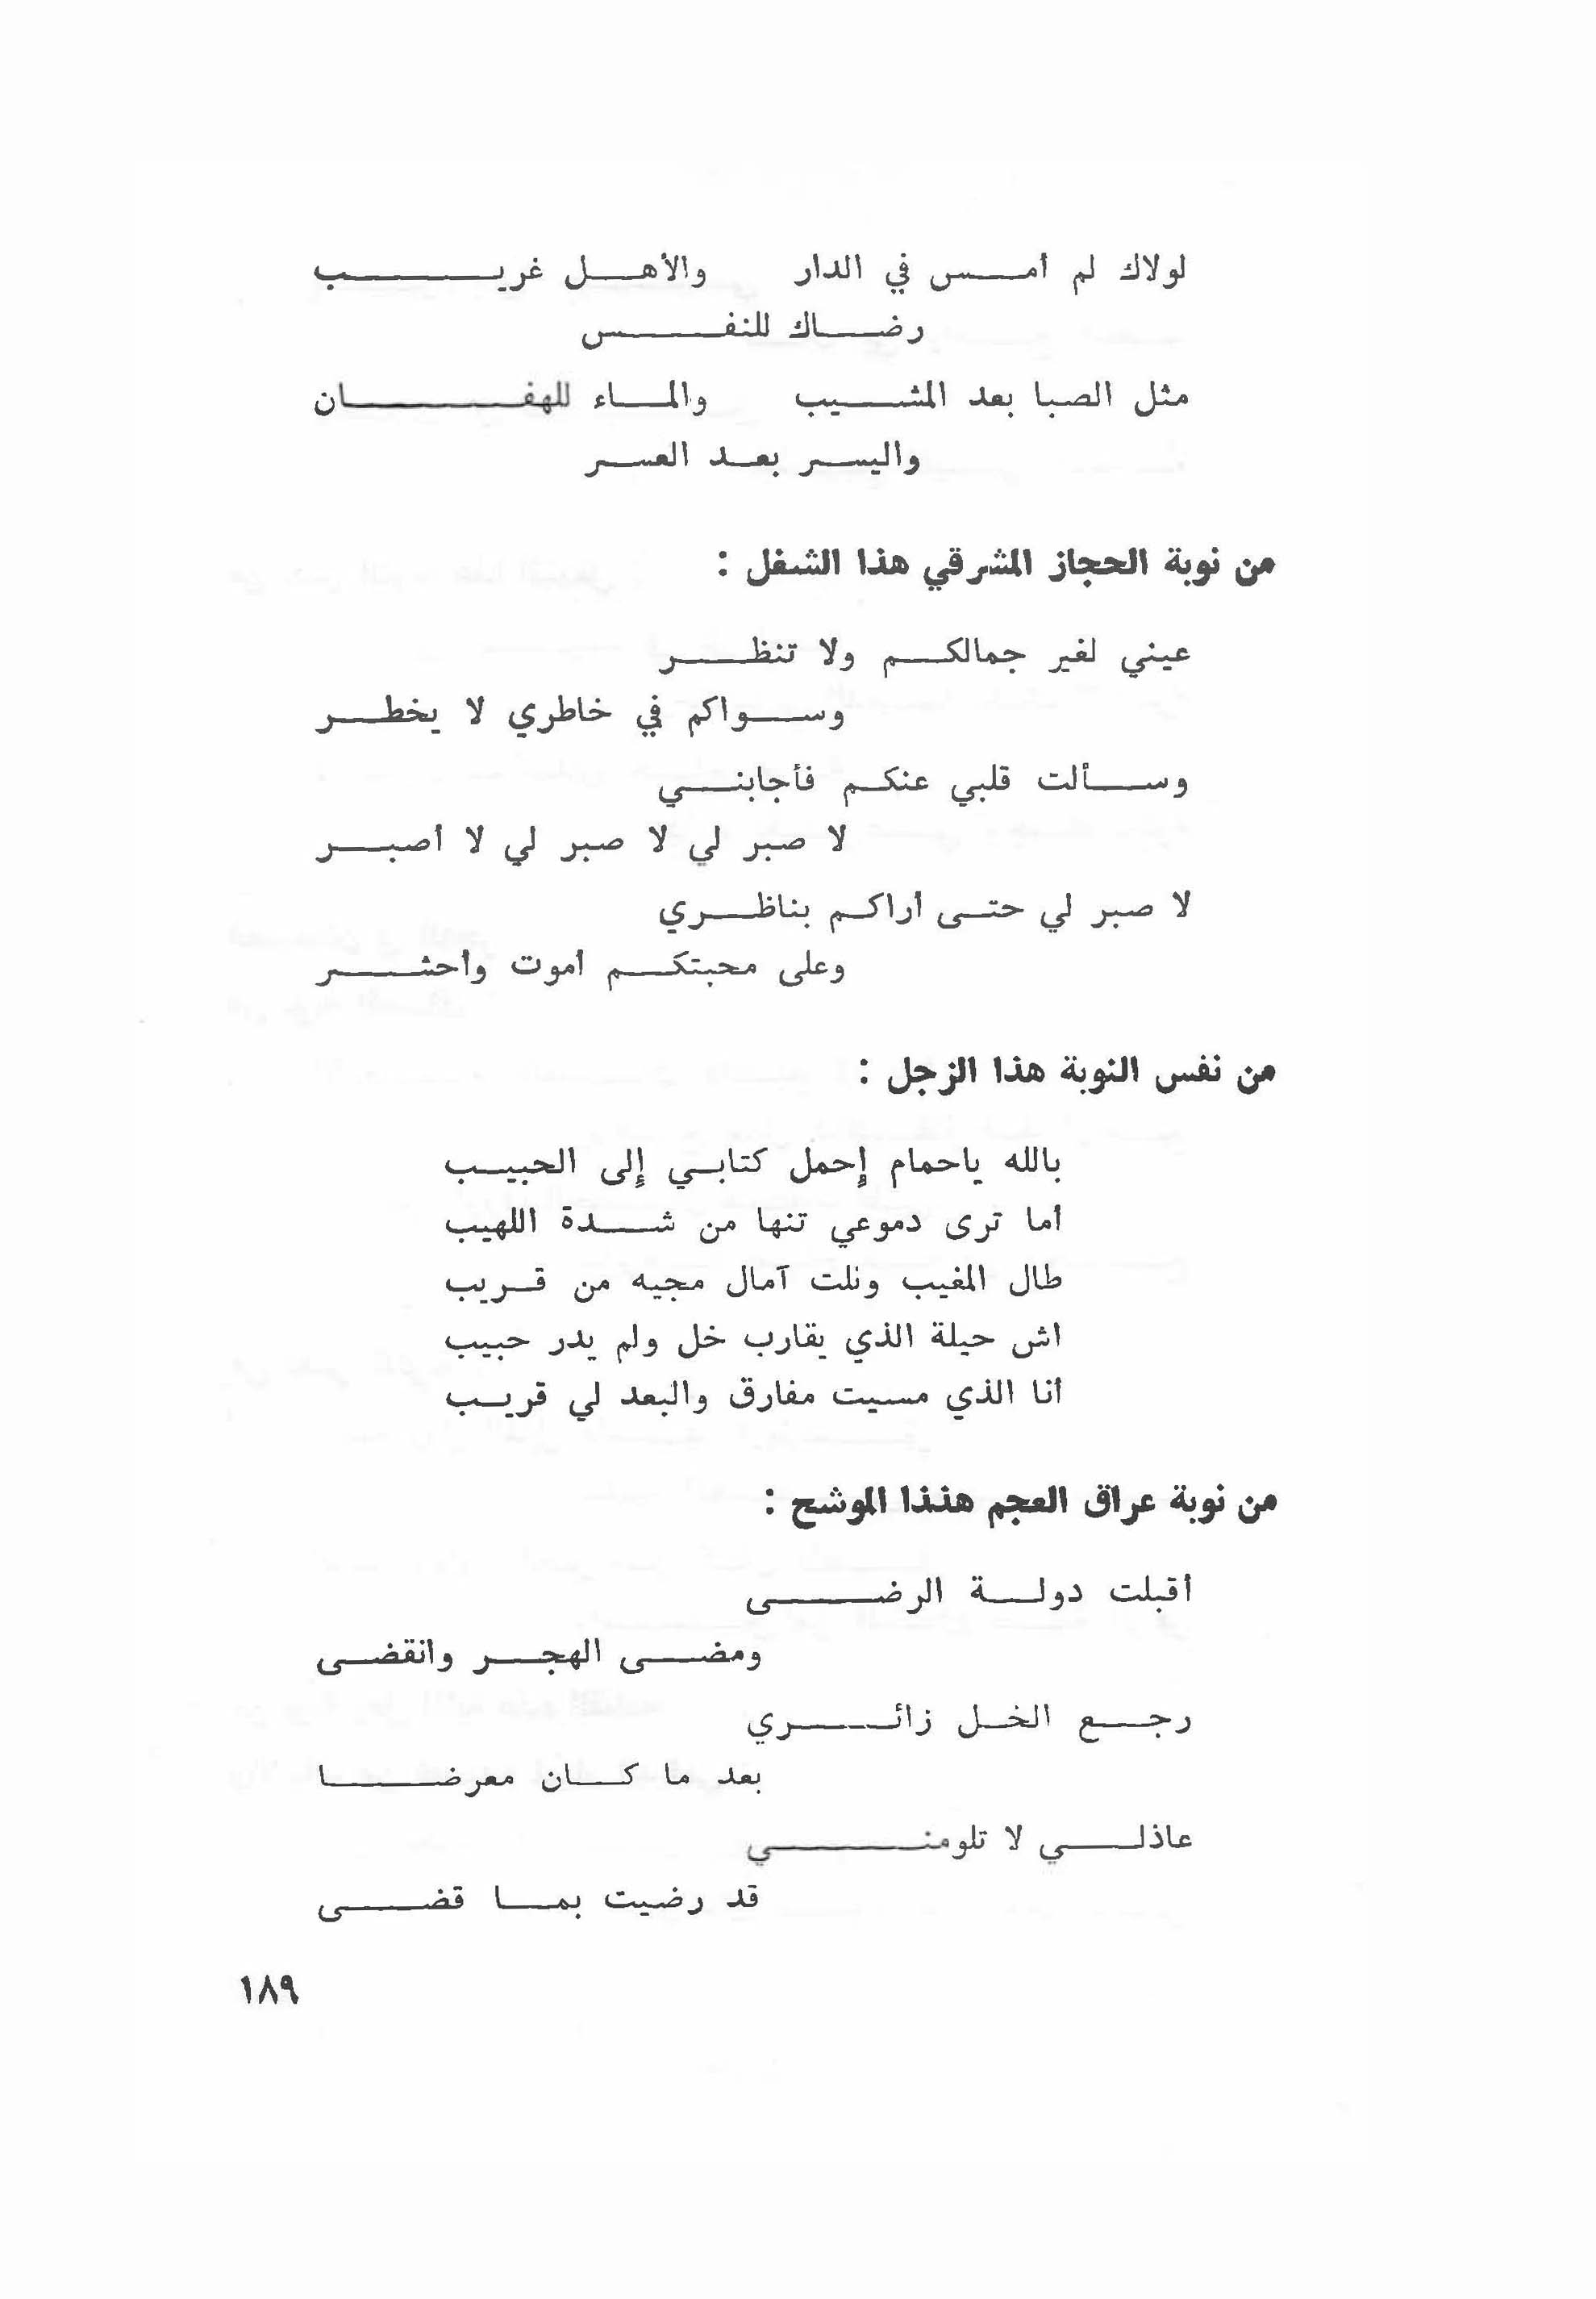 لولاك لم أمس في الدار والأهل غريب
رضاك للنفس
مثل الصبا بعد المشيب والماء للهفان
واليسر بعد العسر
من نوبة الحجاز المشرقي هذا الشغل :
عيني لغير جمالكم ولا تنظر
وسواكم في خاطري لا يخطر
وسألت قلبي عنكم فأجابني
لا صبر لي لا صبر لي لا أصبر
لا صبر لي حتى أراكم بناظري
وعلى محبتكم أموت وأحشر
من نفس النوبة هذا الزجل :
بالله ياحمام إحمل كتابي إلى الحبيب
أما ترى دموعي تنها من شدة اللهيب
طال المغيب ونلت آمال مجيه من قريب
اش حيلة الذي يقارب خل ولم يدر حبيب
أنا الذي مسيت مفارق والبعد لي قريب
من نوبة عراق العجم هنذا الموشح :
أقبلت دولة الرضى
ومضى الهجر وانقضى
رجع الخل زائري
بعد ما كان معرضا
عاذلي لا تلومني
قد رضيت بما قضى
١٨٩